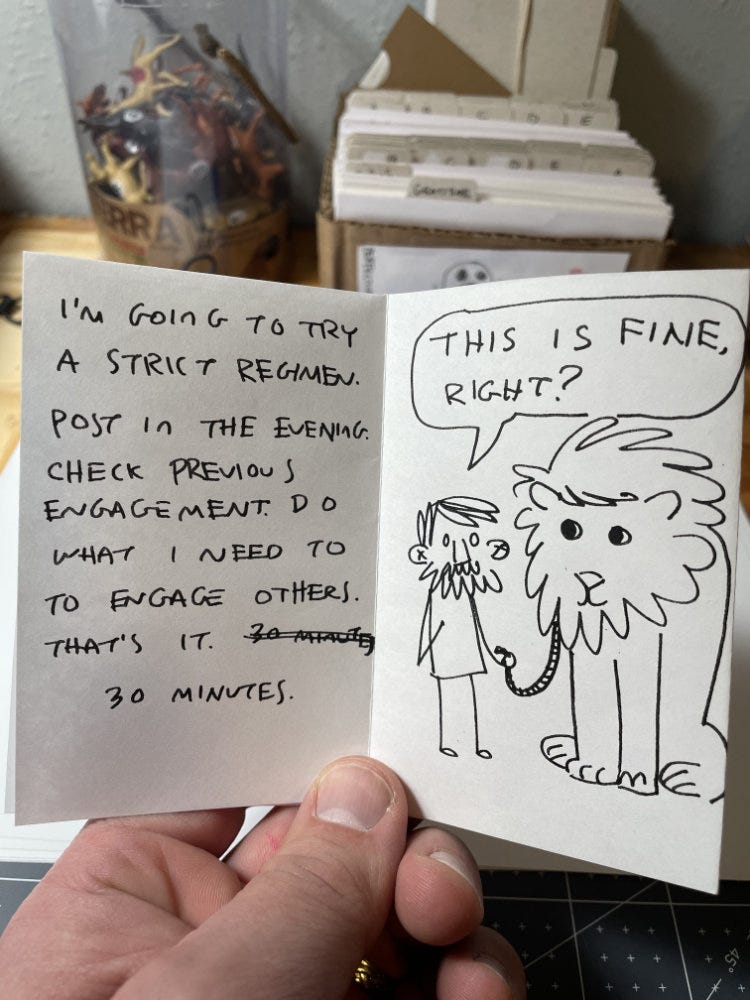 I'M GOING TO TRY
A STRICT REGIMEN.
POST IN THE EVENING.
CHECK PREVIOUS
ENGAGEMENT. DO
WHAT I NEED TO
TO ENGAGE OTHERS.
THAT'S IT. 30 MINUTES
30 MINUTES.
THIS IS FINE,
RIGHT?
C D E
D E
45°